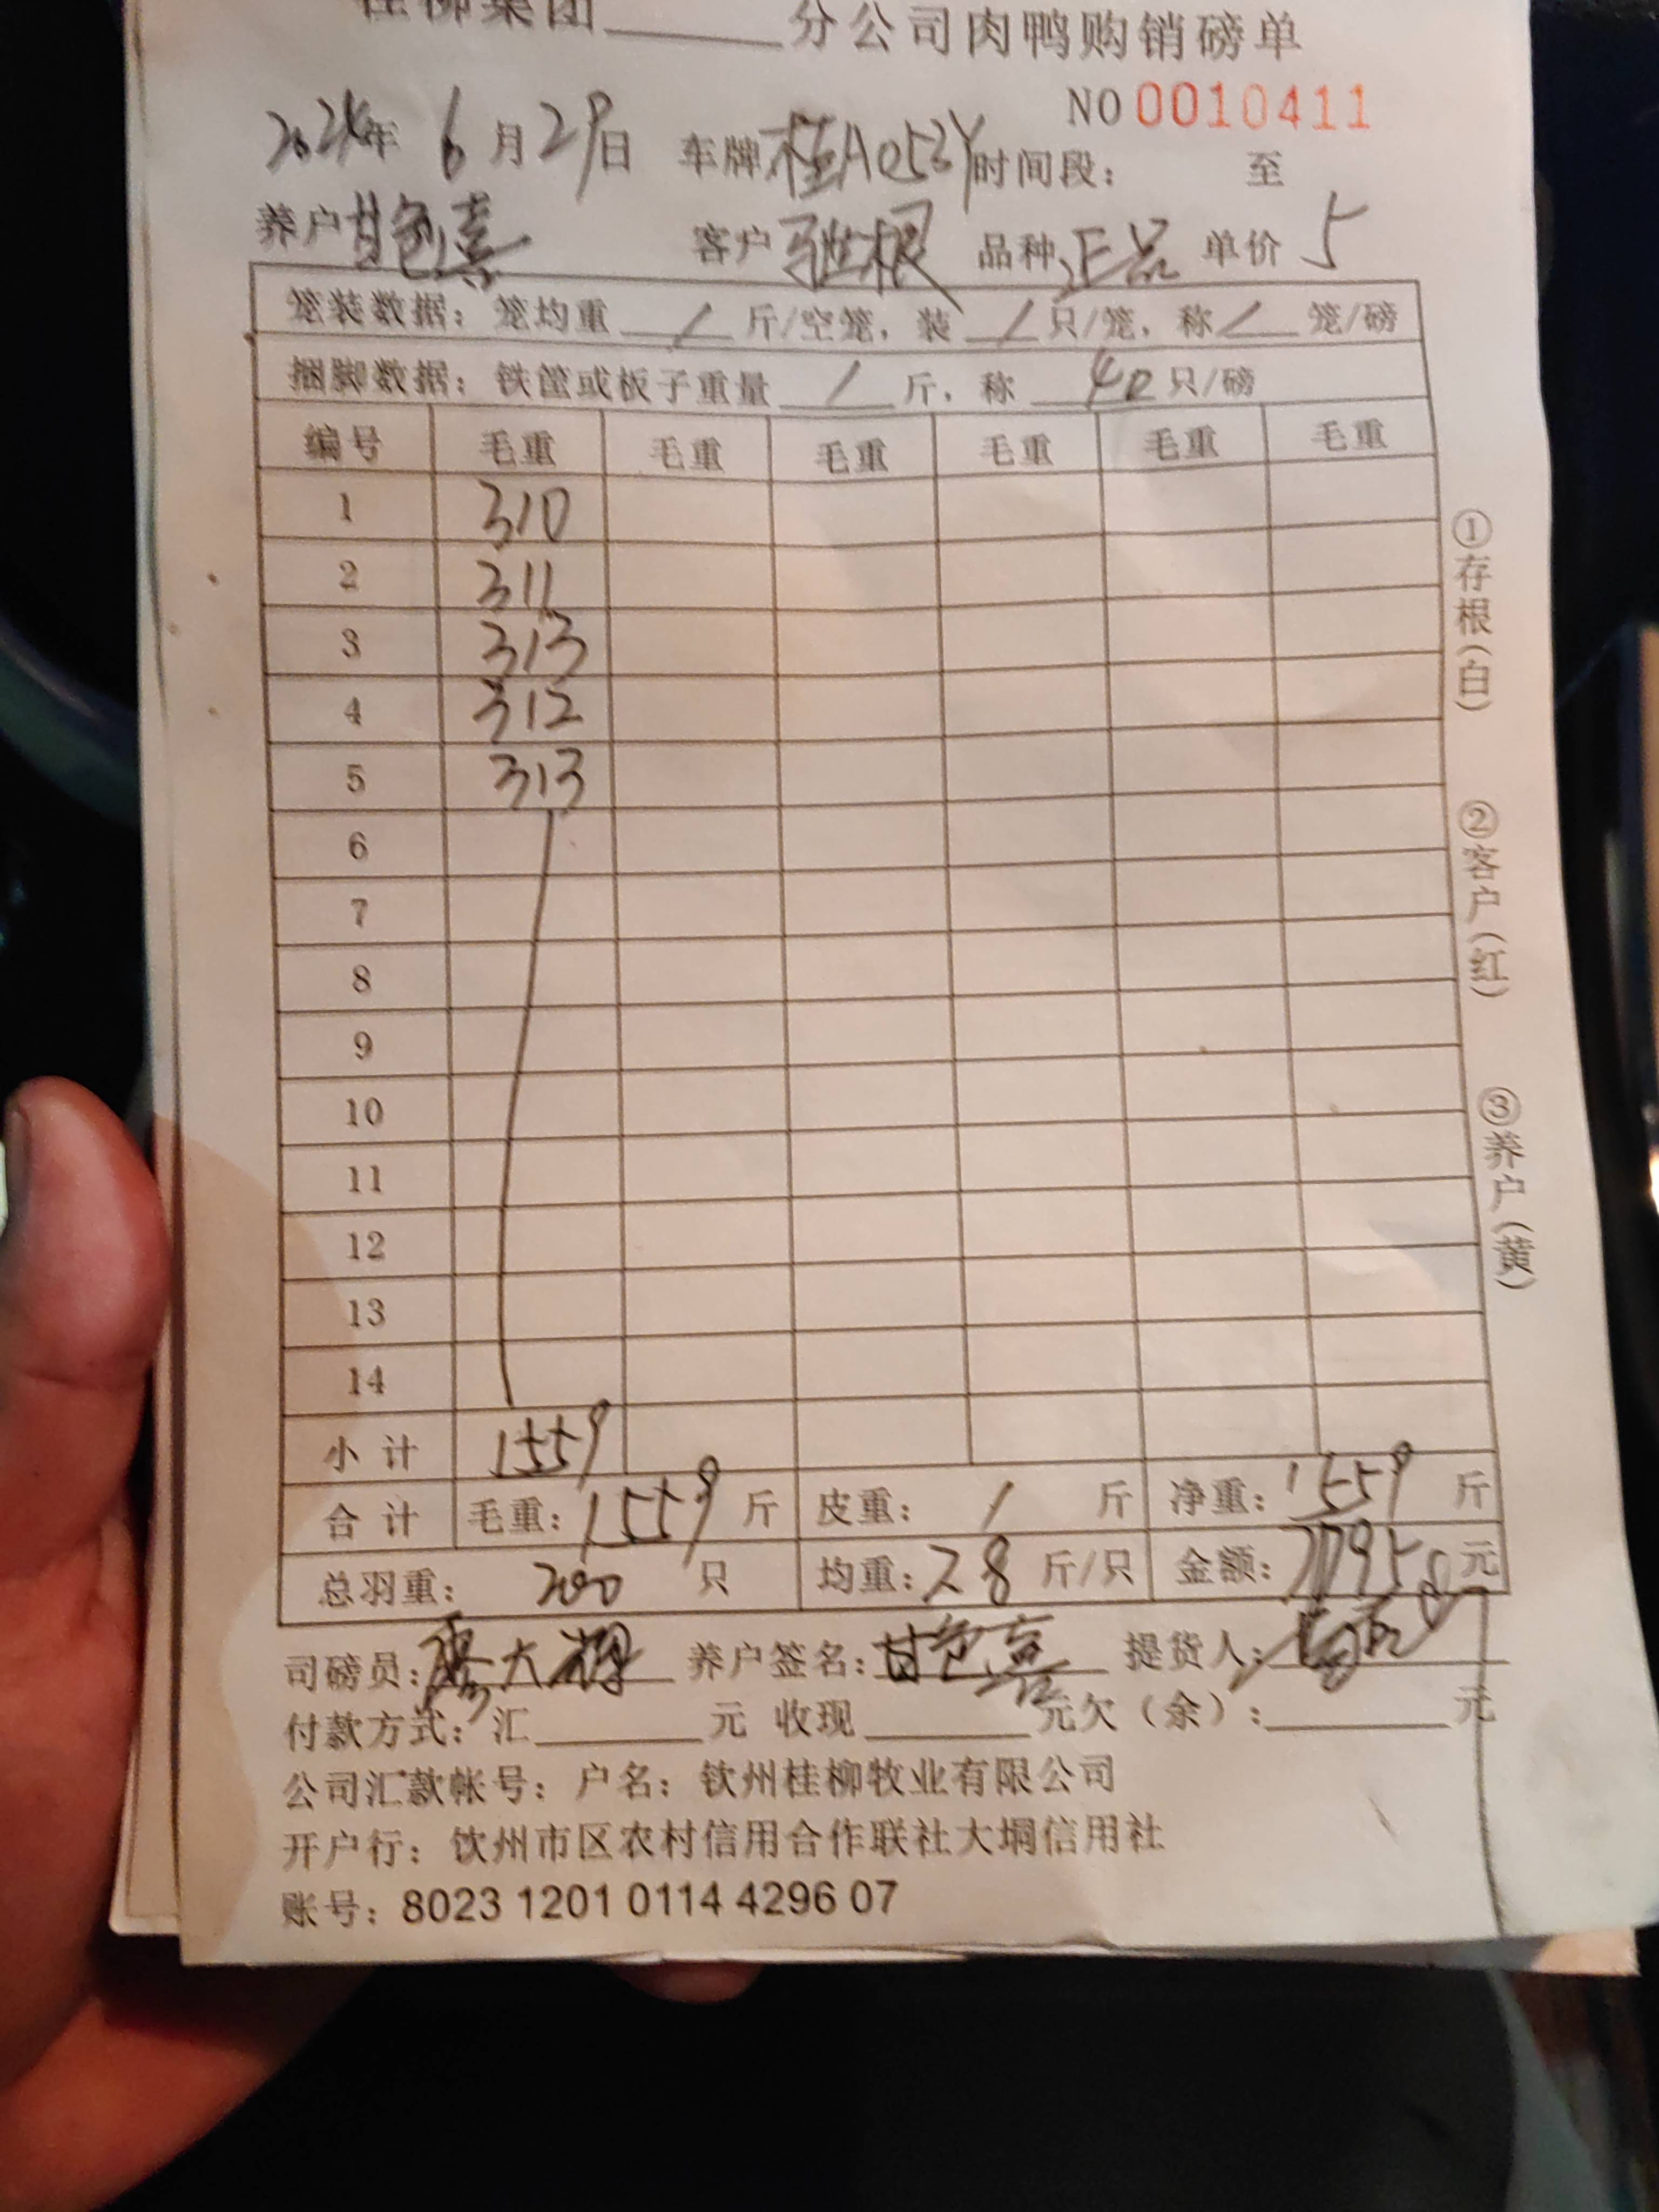 桂柳集团______分公司肉鸭购销磅单
NO 0010411
2024年 6 月 29日 车牌 桂A053Y 时间段： 至
养户 甘色喜 客户 品种 正品 单价 5
笼装数据：笼均重 / 斤/空笼，装 / 只/笼，称 / 笼/磅
捆脚数据：铁筐或板子重量 / 斤，称 40 只/磅
编号 毛重 毛重 毛重 毛重 毛重 毛重
1 310
2 311
3 313
4 312
5 313
6
7
8
9
10
11
12
13
14
小 计 1559
合 计 毛重：1559 斤 皮重： / 斤 净重：1559 斤
总羽重： 200 只 均重：7.8 斤/只 金额：7795.0 元
司磅员：廖大湘 养户签名：甘色喜 提货人：
付款方式：汇______元 收现______元欠（余）：______元
公司汇款帐号：户名：钦州桂柳牧业有限公司
开户行：饮州市区农村信用合作联社大垌信用社
账号：8023 1201 0114 4296 07
①存根（白）
②客户（红）
③养户（黄）